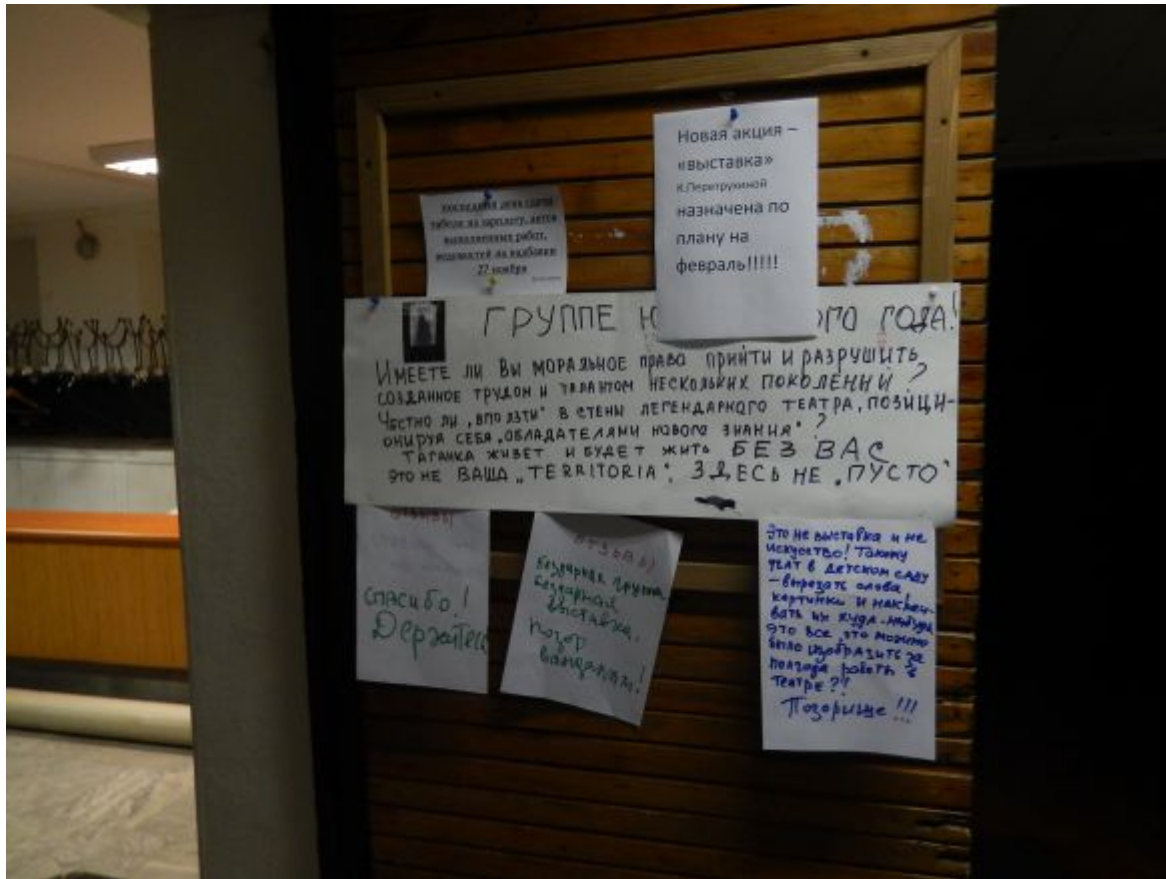 Новая акция –
«выставка»
К.Перетрухиной
назначена по
плану на
февраль!!!!!
последний день сдачи
табеля на зарплату, актов
выполненных работ,
ведомостей на надбавки
27 ноября
ГРУППЕ Ю ОГО ГОДА!
ИМЕЕТЕ ЛИ ВЫ МОРАЛЬНОЕ ПРАВО ПРИЙТИ И РАЗРУШИТЬ
СОЗДАННОЕ ТРУДОМ И ТАЛАНТОМ НЕСКОЛЬКИХ ПОКОЛЕНИЙ?
ЧЕСТНО ЛИ „ВПОЛЗТИ" В СТЕНЫ ЛЕГЕНДАРНОГО ТЕАТРА, ПОЗИЦИ-
ОНИРУЯ СЕБЯ „ОБЛАДАТЕЛЯМИ НОВОГО ЗНАНИЯ"?
ТАГАНКА ЖИВЕТ И БУДЕТ ЖИТЬ БЕЗ ВАС
ЭТО НЕ ВАША „TERRITORIA". ЗДЕСЬ НЕ „ПУСТО"
ОТЗЫВЫ
СПАСИБО!
Держитесь
ОТЗЫВЫ
Бездарная группа
бездарная
выставка.
Позор
вандалам!
Это не выставка и не
искусство! Такому
учат в детском саду
– вырезать слова,
картинки и наклеи-
вать их куда-нибудь
Это все, что можно
было изобразить за
полгода работы в
театре?!
Позорище!!!